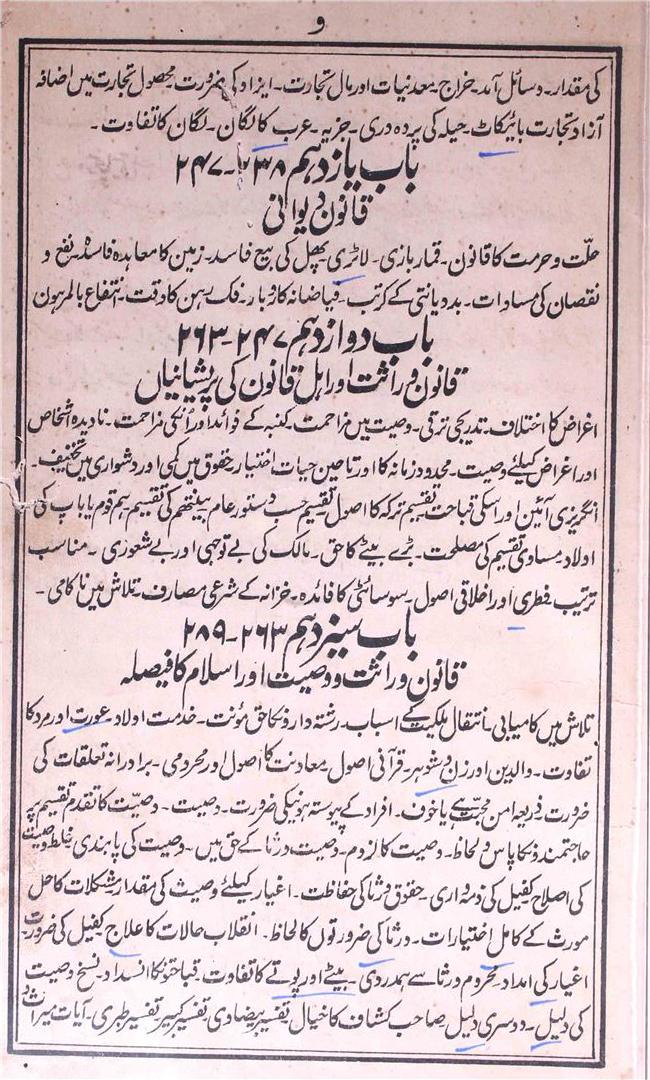 و
کی مقدار۔ وسائل آمد۔ خراج۔ معدنیات اور مال تجارت۔ ایزاد کی ضرورت۔ محصول تجارت میں اضافہ
آزاد تجارت بائیکاٹ۔ حیلہ کی پردہ دری۔ جزیہ۔ عرب کا لگان۔ لگان کا تفاوت۔
باب یازدہم ۲۳۸۔۲۴۷
قانون دیوانی
حلّت و حرمت کا قانون۔ قمار بازی۔ لاٹری پھل کی بیع فاسد۔ زمین کا معاہدہ فاسدہ۔ نفع و
نقصان کی مساوات۔ بددیانتی کے کرتب۔ فیاضانہ کاروبار۔ فک رہن کا وقت۔ انتفاع بالمرہون
باب دوازدہم ۲۴۷۔۲۶۳
قانون وراثت اور اہل قانون کی پریشانیاں
اغراض کا اختلاف۔ تدریجی ترقی۔ وصیت میں مزاحمت۔ کنبہ کے فوائد اور انکی مزاحمت۔ نادیدہ اشخاص
اور اغراض کیلئے وصیت۔ محدود زمانہ کا اور تاحین حیات اختیار۔ حقوق میں کمی اور دشواری میں تخفیف۔
انگریزی آئین اور اسکی قباحت تقسیم ترکہ کا اصول تقسیم حسب دستور عام بینتھم کی تقسیم ہم قوم یا باپ کی
اولاد۔ مساوی تقسیم کی مصلحت۔ بڑے بیٹے کا حق۔ مالک کی بے توجہی اور بے شعوری۔ مناسب
ترتیب فطری اور اخلاقی اصول۔ سوسائٹی کا فائدہ۔ خزانہ کے شرعی مصارف۔ تلاش میں ناکامی۔
باب سیزدہم ۲۶۳۔۲۸۹
قانون وراثت و وصیت اور اسلام کا فیصلہ
تلاش میں کامیابی۔ انتقال ملکیت کے اسباب۔ رشتہ داروں کا حق مؤنت۔ خدمت اولاد۔ عورت اور مرد کا
تفاوت۔ والدین اور زن و شوہر۔ قرآنی اصول۔ معاونت کا اصول اور محرومی۔ برادرانہ تعلقات کی
ضرورت ذریعہ امن محبت ہے یا خوف۔ افراد کے پیوستہ ہونیکی ضرورت۔ وصیت۔ وصیّت کا تقدم تقسیم پر
حاجتمندونکا پاس و لحاظ۔ وصیت کا لزوم۔ وصیت ورثا کے حق میں۔ وصیت کی پابندی غلط وصیت
کی اصلاح کفیل کی ذمہ داری۔ حقوق ورثا کی حفاظت۔ اغیار کیلئے وصیت کی مقدار۔ مشکلات کا حل
مورث کے کامل اختیارات۔ ورثا کی ضرورتوں کا لحاظ۔ انقلاب حالات کا علاج کفیل کی ضرورت۔
اغیار کی امداد۔ محروم ورثا سے ہمدردی۔ بیٹے اور پوتے کا تفاوت۔ قباحتونکا انسداد۔ نسخ وصیت
کی دلیل۔ دوسری دلیل صاحب کشاف کا خیال۔ تفسیر بیضاوی تفسیر کبیر تفسیر طبری۔ آیات میراث